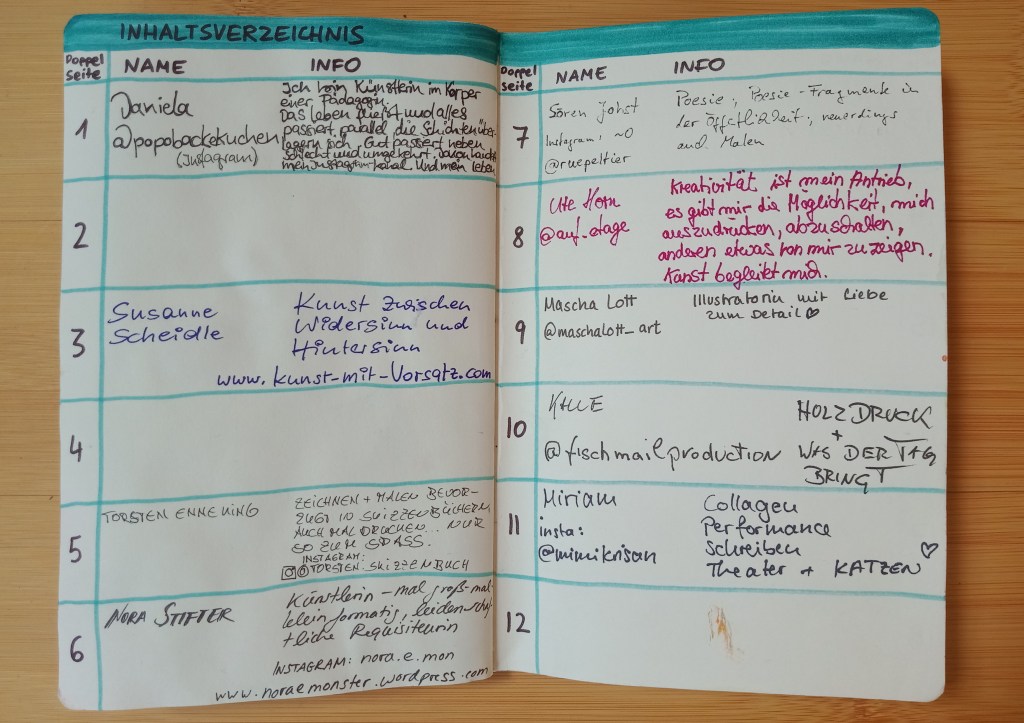 INHALTSVERZEICHNIS
Doppel
seite
NAME
INFO
1
Daniela
@popobackekuchen
(Instagram)
Ich bin Künstlerin im Körper
einer Pädagogin.
Das Leben und alles
passiert parallel, die Schichten über-
lagern sich. Gut passiert neben
Schlecht und umgekehrt. Davon handelt
mein Instagram-Kanal. Und mein Leben
2
3
Susanne
Scheidle
Kunst zwischen
Widersinn und
Hintersinn
www.kunst-mit-Vorsatz.com
4
5
TORSTEN ENNEKING
ZEICHNEN + MALEN BEVOR-
ZUGT IN SKIZZENBÜCHERN
AUCH MAL DRUCKEN... NUR
SO ZUM SPASS.
INSTAGRAM:
@TORSTEN.SKIZZENBUCH
6
NORA STIFTER
Künstlerin – mal groß- mal
kleinformatig, leidenschaf-
tliche Requisiteurin
INSTAGRAM: nora.e.mon
www.noraemonster.wordpress.com
Doppel
seite
NAME
INFO
7
Sören Johst
Instagram:
@ruepeltier
Poesie, Poesie-Fragmente in
der Öffentlichkeit, neuerdings
auch Malen
8
Ute Horn
@auf_etage
Kreativität ist mein Antrieb,
es gibt mir die Möglichkeit, mich
auszudrücken, abzuschalten,
anderen etwas von mir zu zeigen.
Kunst begleitet mich.
9
Mascha Lott
@maschalott_art
Illustratorin mit Liebe
zum Detail ♡
10
KALLE
@fischmailproduction
HOLZDRUCK
+
WAS DER TAG
BRINGT
11
Miriam
insta:
@mimikrisan
Collagen
Performance
Schreiben
Theater + KATZEN ♡
12